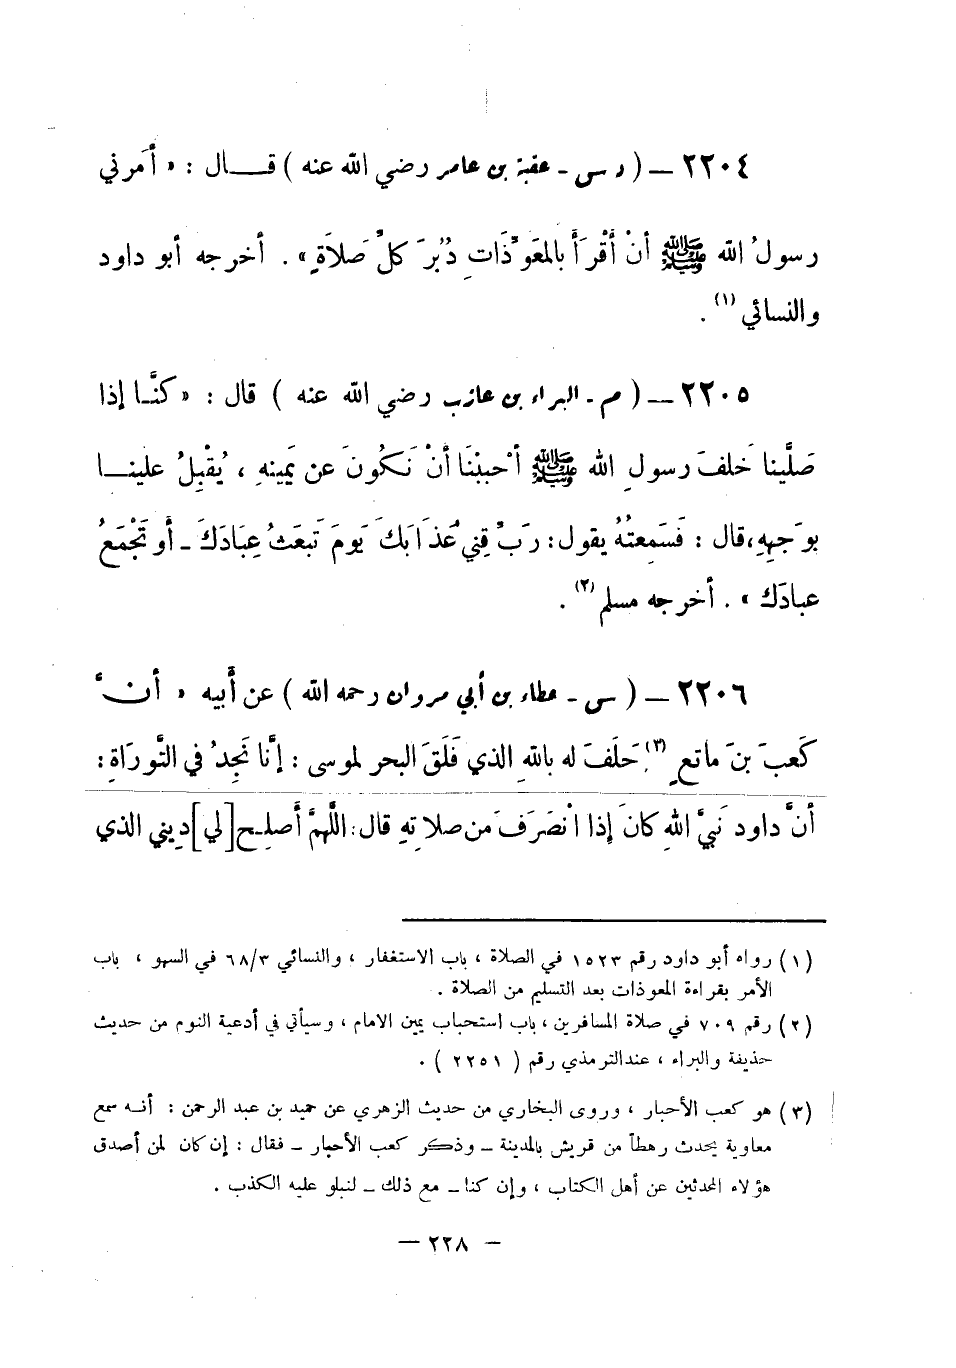 ٢٢٠٤ — ( د س - عقبة بن عامر رضي الله عنه ) قــال : « أَمرني
رسولُ الله ﷺ أنْ أقْرَأَ بالمعَوِّذَاتِ دُبُرَ كلِّ صَلاَةٍ » . أخرجه أبو داود
والنسائي (١) .
٢٢٠٥ — ( م - البراء بن عازب رضي الله عنه ) قال : « كنَّـا إذا
صَلَّينا خَلفَ رسولِ الله ﷺ أحْببْنَا أنْ نَكُونَ عن يَمينِهِ ، يُقْبِلُ علينــا
بوَجهِهِ،قال : فَسَمِعتُهُ يقول: رَبِّ قِني عَذَابَكَ يَومَ تَبعَثُ عِبَادَكَ - أو تَجْمَعُ
عبادَك » . أخرجه مسلم (٢) .
٢٢٠٦ — ( س - عطاء بن أبي مروان رحمه الله ) عن أَبيه « أنَّ
كَعبَ بنَ ماتعٍ (٣) حَلَفَ له باللهِ الذي فَلَقَ البحر لموسى : إنَّا نَجِدُ في التَّورَاةِ :
أنَّ داود نَبيَّ اللهِ كانَ إذا انْصَرَفَ من صلاتِهِ قال: اللَّهمَّ أَصلِـح [لي] دِيني الذي
(١) رواه أبو داود رقم ١٥٢٣ في الصلاة ، باب الاستغفار ، والنسائي ٦٨/٣ في السهو ، باب
الأمر بقراءة المعوذات بعد التسليم من الصلاة .
(٢) رقم ٧٠٩ في صلاة المسافرين ، باب استحباب يمين الامام ، وسيأتي في أدعية النوم من حديث
حذيفة والبراء ، عند الترمذي رقم ( ٢٢٥١ ) .
(٣) هو كعب الأحبار ، وروى البخاري من حديث الزهري عن حميد بن عبد الرحمن : أنـه سمع
معاوية يحدث رهطاً من قريش بالمدينة - وذكر كعب الأحبار - فقال : إن كان لمن أصدق
هؤلاء المحدثين عن أهل الكتاب ، وإن كنا - مع ذلك - لنبلو عليه الكذب .
— ٢٢٨ —